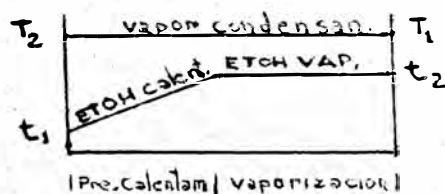 T2 vapor condensan. T1
ETOH calent. ETOH VAP.
t1 t2
| Pre.Calentam | vaporización |